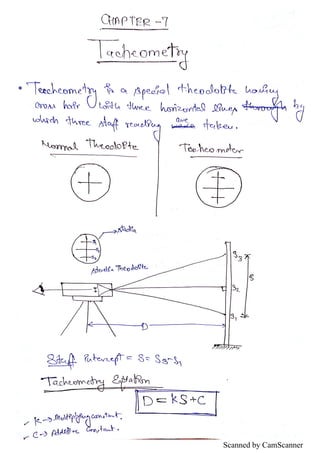 CHAPTER -7
Tacheometry
• Teacheometry is a special theodolite having
cross hair with three horizontal lines through by
which three staff reading are taken.
Normal Theodolite
Tacheometer
stadia
Stadia Theodolite
S3
S
S2
S1
D
Staff Intercept = S = S3-S1
Tacheometry Equation
D = KS+C
K → Multiplying constant.
C → Additive Constant.
Scanned by CamScanner